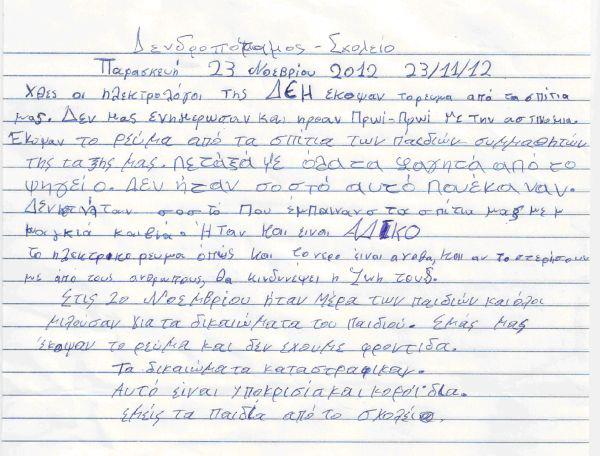 Δενδροπόταμος - Σχολείο
Παρασκευή 23 Νοεβρίου 2012 23/11/12
Χθες οι ηλεκτρολόγοι της ΔΕΗ έκοψαν το ρευμα από τα σπίτια
μας. Δεν μας ενημέρωσαν και ηρθαν πρωί-πρωί με την αστυνομία.
Έκοψαν το ρεύμα από τα σπίτια των παιδιών συμμαθητών
της ταξης μας. Πεταξα με ολα τα φαγητά από το
ψηγείο. Δεν ήταν σοστό αυτό που έκαναν.
Δεν ήταν σοστό που έμπαιναν στα σπίτια μας με
μαγκιά και βία. Ήταν και είναι ΑΔΙΚΟ
το ηλεκτρικο ρευμα όπως και το νερο ειναι αγαθα, και αν το στερήσουν
με από τους ανθρωπους, θα κινδυνέψει η ζωή τους.
Στις 20 Νοεμβρίου ήταν μέρα των παιδιών και όλοι
μιλουσαν για τα δικαιώματα του παιδιού. Εμάς μας
έκοψαν το ρεύμα και δεν εχουμε φροντιδα.
Τα δικαιώματα καταστραφικαν.
Αυτό είναι υποκρισία και κοροϊδία.
Εμείς τα παιδία από το σχολείο.